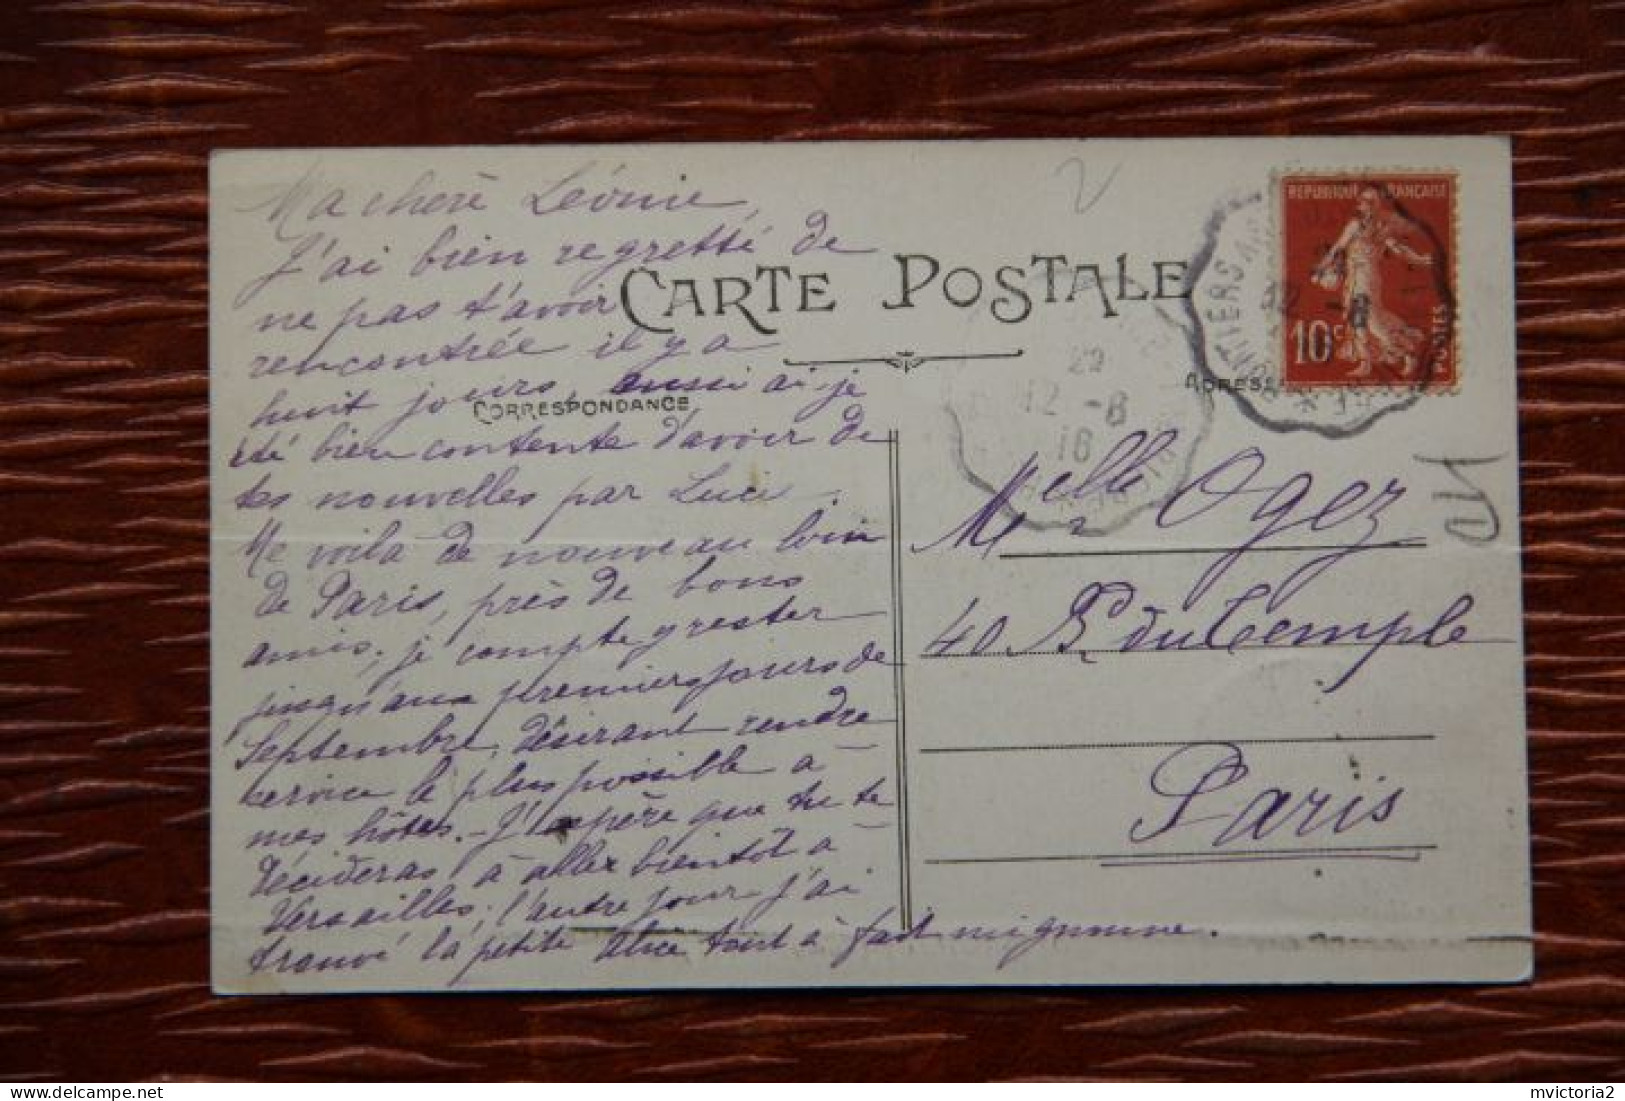 Ma chère Léonie,
J'ai bien regretté de
ne pas t'avoir
rencontrée il y a
huit jours, aussi ai-je
été bien contente d'avoir de
tes nouvelles par Lucie.
Me voilà de nouveau loin
de Paris, près de bons
amis; je compte y rester
jusqu'aux premiers jours de
Septembre, désirant rendre
service le plus possible à
mes hôtes. - J'espère que tu te
décideras à aller bientôt à
Versailles; l'autre jour j'ai
trouvé la petite Alice tout à fait mignonne.
CARTE POSTALE
CORRESPONDANCE
ADRESSE
REPUBLIQUE FRANÇAISE
10c
POSTES
PONTIERS
12 -8
22
12 -8
16
Melle Ogez
40 R. du Temple
Paris
mvictoria2